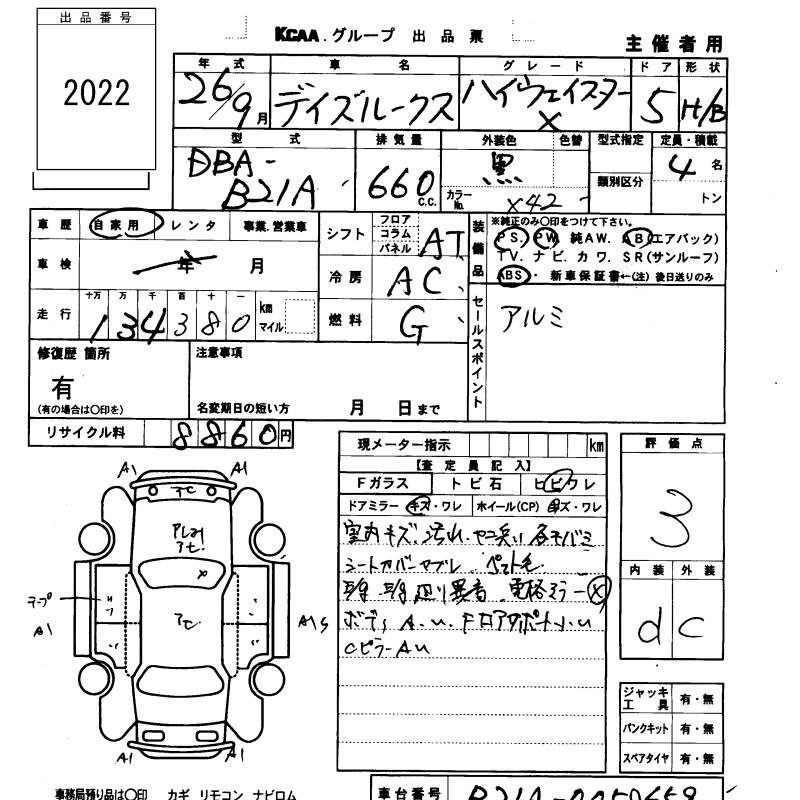 出品番号
2022
KCAA.グループ 出品票
主催者用
年式 車名 グレード ドア 形状
26/9月 デイズルークス ハイウェイスター X 5 H/B
型式 排気量 外装色 色替 型式指定 定員・積載
DBA-B21A 660 C.C. 黒 類別区分 4名
カラーNo. X42 トン
車歴 自家用 レンタ 事業.営業車
シフト フロア コラム パネル AT
装備品 ※純正のみ〇印をつけて下さい。
PS. PW. 純AW. AB(エアバック)
TV. ナビ. カワ. SR(サンルーフ)
ABS ・ 新車保証書←(注) 後日送りのみ
車検 年 月
冷房 AC
走行 十万 万 千 百 十 一
134380 km マイル
燃料 G
セールスポイント
アルミ
修復歴 箇所
有
(有の場合は〇印を)
注意事項
名変期日の短い方 月 日まで
リサイクル料 8860円
現メーター指示 km
【査定員記入】
Fガラス トビ石 ヒビワレ
ドアミラー キズ・ワレ ホイール(CP) キズ・ワレ
室内キズ、汚れ、ヤニ臭い
シートカバーヤブレ ペット毛
異音 電格ミラー
ボディ A.U.
CピラーAU
評価点
3
内装 外装
d C
ジャッキ工具 有・無
パンクキット 有・無
スペアタイヤ 有・無
A1 A1
テープ
A1
A1
A1 A1
事務局預り品は〇印 カギ リモコン ナビロム
車台番号 B21A-0050659